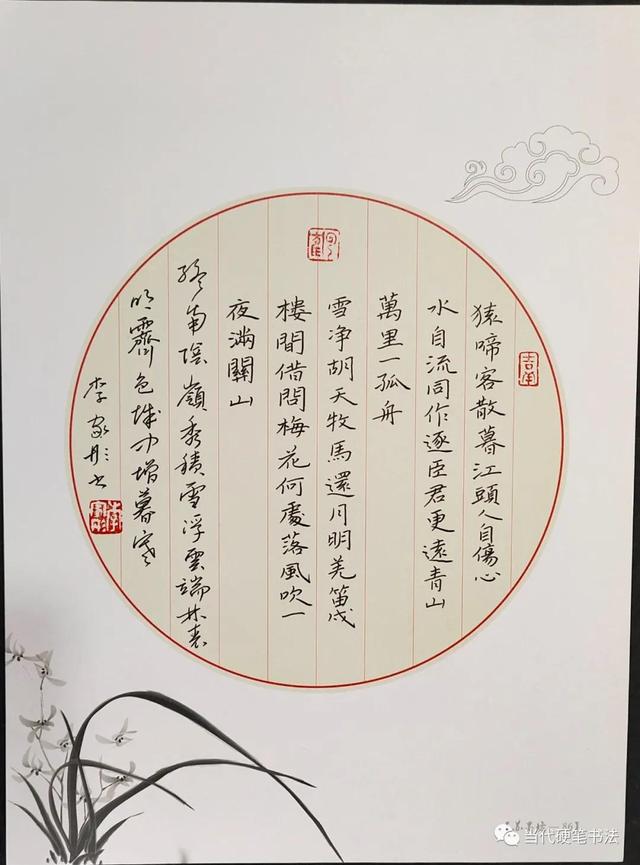 猿啼客散暮江頭人自傷心
水自流同作逐臣君更遠青山
萬里一孤舟
雪净胡天牧馬還月明羌笛戍
樓間借問梅花何處落風吹一
夜滿關山
終南陰嶺秀積雪浮雲端林表
明霽色城中增暮寒
李家彤书
当代硬笔书法